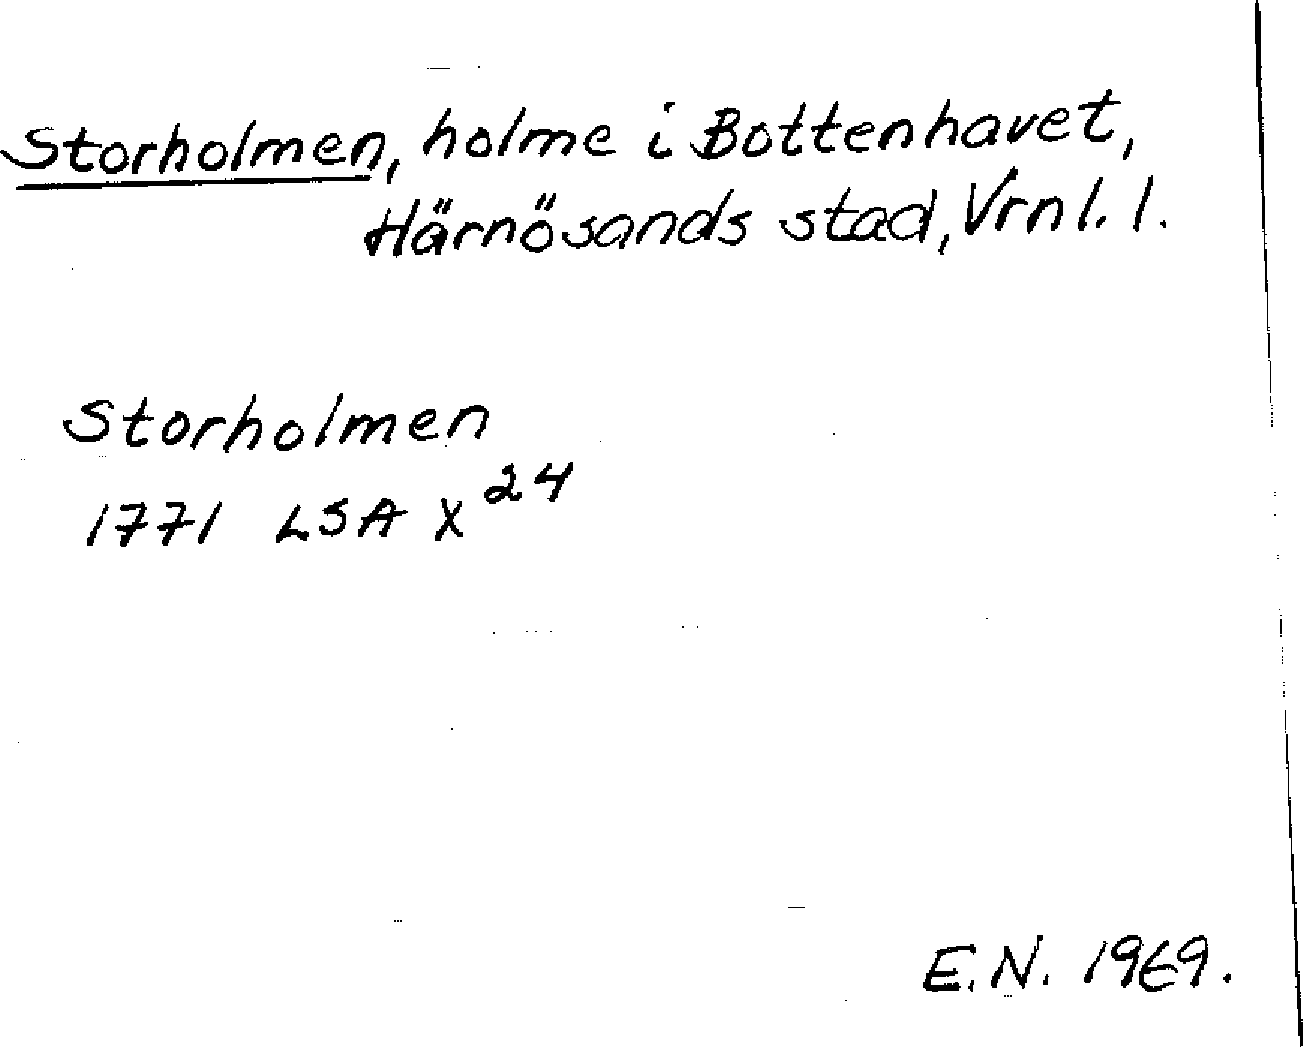 Storholmen, holme i Bottenhavet,
Härnösands stad, Vrnl. l.
Storholmen
1771 LSA X 24
E.N. 1969.